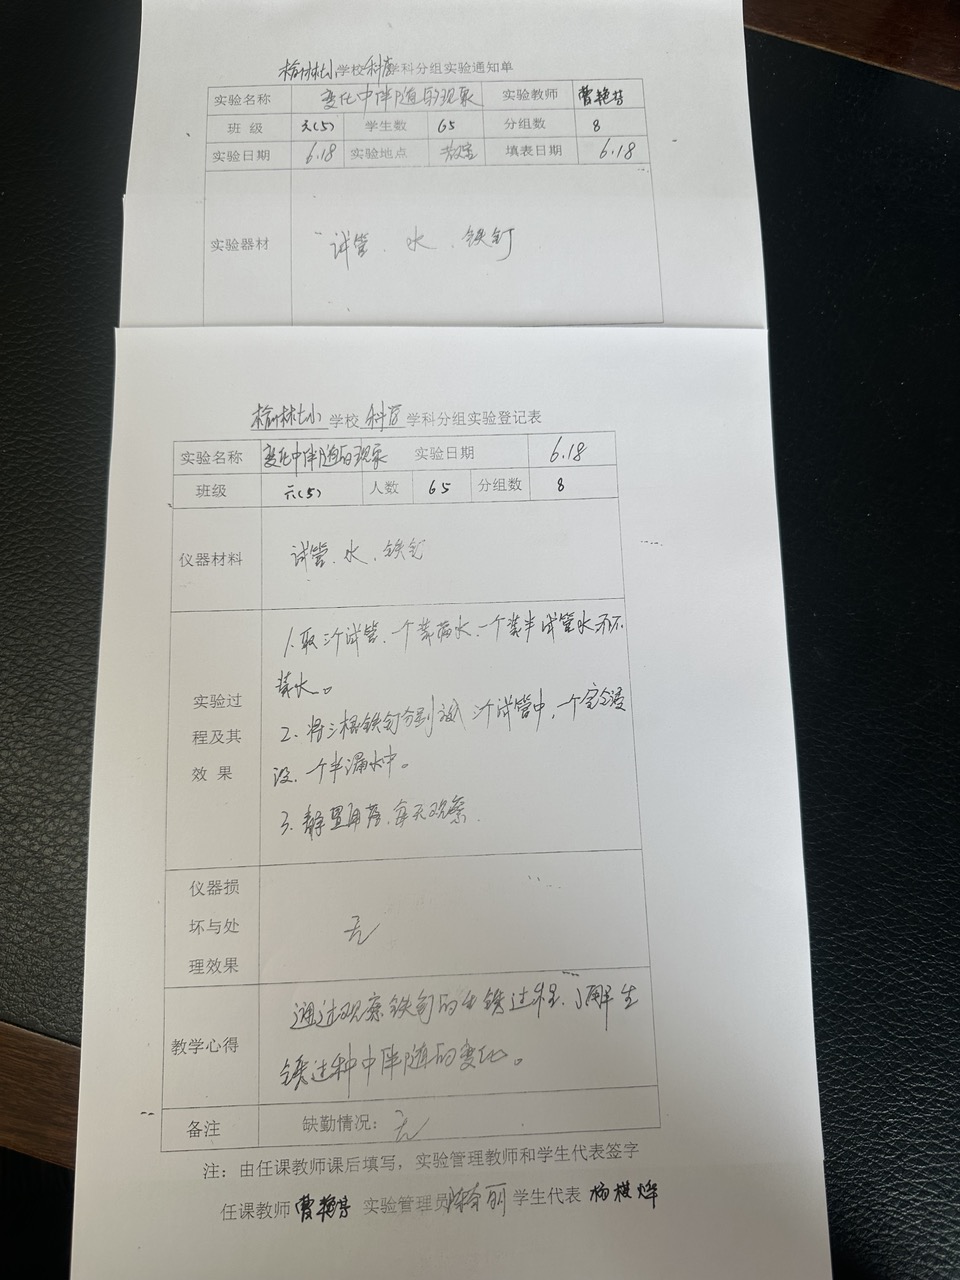 榆林小学校科学学科分组实验通知单
实验名称 变化中伴随的现象 实验教师 曹艳芬
班 级 六(5) 学生数 65 分组数 8
实验日期 6.18 实验地点 教室 填表日期 6.18
实验器材 试管、水、铁钉
榆林小学校科学学科分组实验登记表
实验名称 变化中伴随的现象 实验日期 6.18
班级 六(5) 人数 65 分组数 8
仪器材料 试管、水、铁钉
1、取三个试管,一个装满水,一个装半试管水,不
装水。
实验过
2、将三根铁钉分别放入三个试管中,一个完全浸
程及其
没,一个半漏水中。
效 果
3、静置用荐,每天观察.
仪器损
坏与处 无
理效果
通过观察铁钉的生锈过程,了解生
教学心得
锈过种中伴随的变化。
备注 缺勤情况:无
注:由任课教师课后填写,实验管理教师和学生代表签字
任课教师 曹艳芬 实验管理员 丽 学生代表 杨棋烨